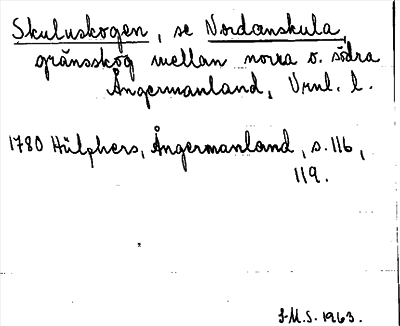 Skuluskogen, se Nordanskula,
gränsskog mellan norra o. södra
Ångermanland, Vrnl. l.
1780 Hülphers, Ångermanland, s. 116,
119.
J.M.S. 1963.